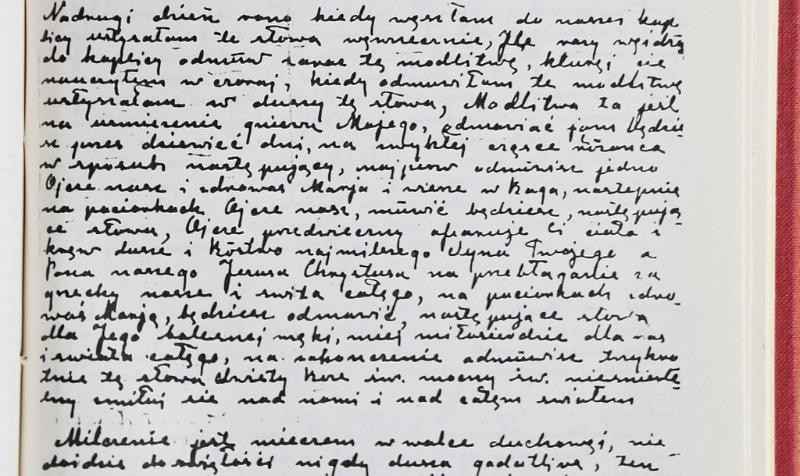 Nadrugi dzień rano kiedy weszłam do naszej kap
licy usłyszałam te słowa wewnęcznie, Ile razy wejdzie
do kaplicy odmów zaraz tę modlitwę, której cię
nauczyłem wczoraj, kiedy odmówiłam tę modlitwę
usłyszałam w duszy tę słowa, Modlitwa ta jest
na uśmierzenie gniewu Mojego, odmawiać ją będzie
sz przez dziewięć dni, na zwykłej cząsce różańca
w sposób następujący, najpierw odmówisz jedno
Ojcze nasz i zdrowaś Marja i wierzę w Boga, następnie
na paciorkach Ojcze nasz, mówić będziesz, następują
ce słowa, Ojcze przedwieczny ofiaruję Ci ciało i
krew duszę i Bóstwo najmilszego Syna Twojego a
Pana naszego Jezusa Chrystusa na przebłaganie za
grzechy nasze i świta całego, na paciorkach zdro_
waś Marja, będziesz odmawiać, następujące słowa
dla Jego bolesnej męki, miej miłosierdzie dla nas
i świata całego, na zakończenie odmówisz trzykro
tnie te słowa Święty Boże św. mocny św. nieśmierte_
lny zmiłuj się nad nami i nad całym światem
Milczenie jest mieczem w walce duchowej, nie_
dojdzie do świętości nigdy dusza gadatliwa,